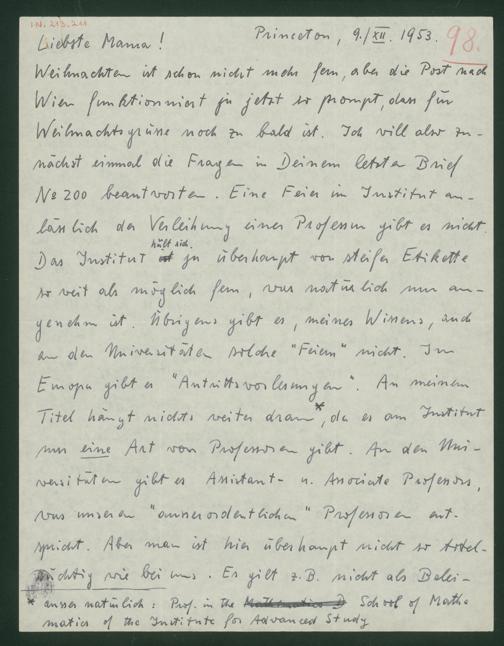 I.N. 213.211
Princeton, 9./XII. 1953.
98.
Liebste Mama!
Weihnachten ist schon nicht mehr fern, aber die Post nach
Wien funktioniert ja jetzt so prompt, dass für
Weihnachtsgrüsse noch zu bald ist. Ich will also zu-
nächst einmal die Fragen in Deinem letzten Brief
No 200 beantworten. Eine Feier im Institut an-
lässlich der Verleihung einer Professur gibt es nicht.
hält sich
Das Institut ist ja überhaupt von steifer Etikette
so weit als möglich fern, was natürlich nur an-
genehm ist. Übrigens gibt es, meines Wissens, auch
an den Universitäten solche "Feiern" nicht. In
Europa gibt es "Antrittsvorlesungen". An meinem
Titel hängt nichts weiter dran*, da es am Institut
nur eine Art von Professoren gibt. An den Uni-
versitäten gibt es Assistant- u. Associate Professors,
was unseren "ausserordentlichen" Professoren ent-
spricht. Aber man ist hier überhaupt nicht so titel-
süchtig wie bei uns. Es gilt z.B. nicht als Belei-
* ausser natürlich: Prof. in the Mathematics D School of Mathe
matics of the Institute for Advanced Study